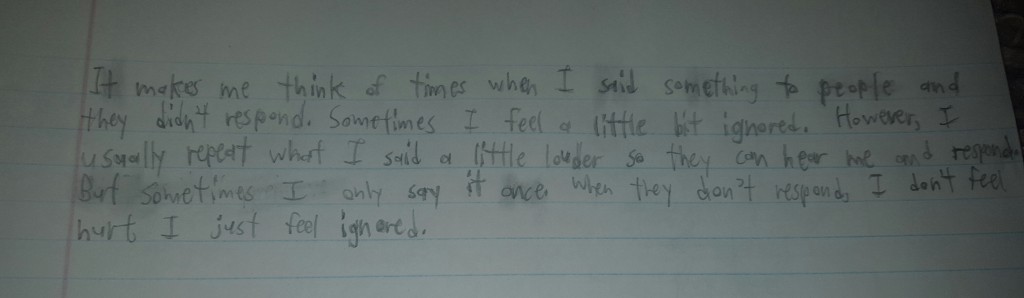 It makes me think of times when I said something to people and
they didn't respond. Sometimes I feel a little bit ignored. However, I
usually repeat what I said a little louder so they can hear me and respond.
But sometimes I only say it once. When they don't respond, I don't feel
hurt I just feel ignored.